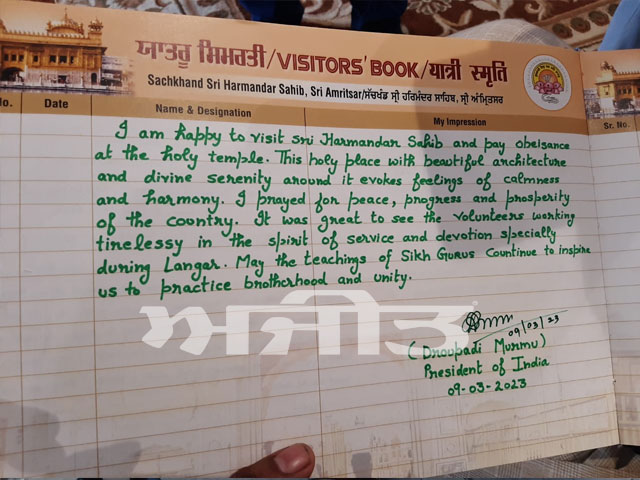 ਯਾਤਰੂ ਸਿਮਰਤੀ/VISITORS' BOOK/यात्री स्मृति
Sachkhand Sri Harmandar Sahib, Sri Amritsar/ਸੱਚਖੰਡ ਸ੍ਰੀ ਹਰਿਮੰਦਰ ਸਾਹਿਬ, ਸ੍ਰੀ ਅੰਮ੍ਰਿਤਸਰ
No. Date Name & Designation My Impression Sr. No.
I am happy to visit Sri Harmandar Sahib and pay obeisance
at the holy temple. This holy place with beautiful architecture
and divine serenity around it evokes feelings of calmness
and harmony. I prayed for peace, progress and prosperity
of the country. It was great to see the volunteers working
tinelessy in the spirit of service and devotion specially
during Langar. May the teachings of Sikh Gurus Countinue to inspire
us to practice brotherhood and unity.
ਅਜੀਤ
09/03/23
(Droupadi Murmu)
President of India
09-03-2023